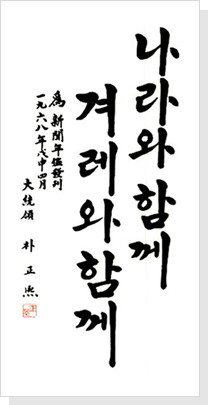 나라와 함께
겨레와 함께
爲 新聞年鑑發刊
一九六八年戊申四月
大統領 朴正熙